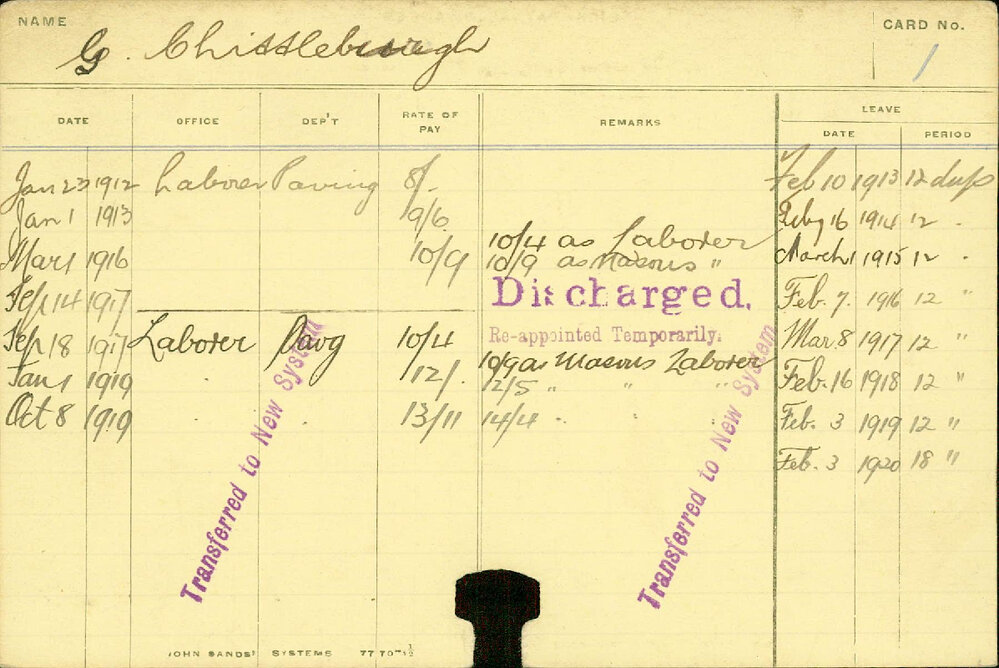 NAME
CARD No.
G. Chittleburgh
1
DATE OFFICE DEP'T RATE OF PAY REMARKS LEAVE
DATE PERIOD
Jan 23 1912 Laborer Paving 8/- Feb 10 1913 12 days
Jan 1 1913 9/6 Feby 16 1914 12 "
10/4 as Laborer
Mar 1 1916 10/9 10/9 as Masons " March 1 1915 12 "
Sep 14 1917 Discharged. Feb. 7. 1916 12 "
Sep 18 1917 Laborer Pavg 10/4 Re-appointed Temporarily. Mar. 8 1917 12 "
10/9 as Masons Laborer
Jan 1 1919 12/- 12/5 " " " Feb. 16 1918 12 "
Oct 8 1919 13/11 14/4 " " Feb. 3 1919 12 "
Feb. 3 1920 18 "
Transferred to New System
Transferred to New System
JOHN SANDS' SYSTEMS 7770